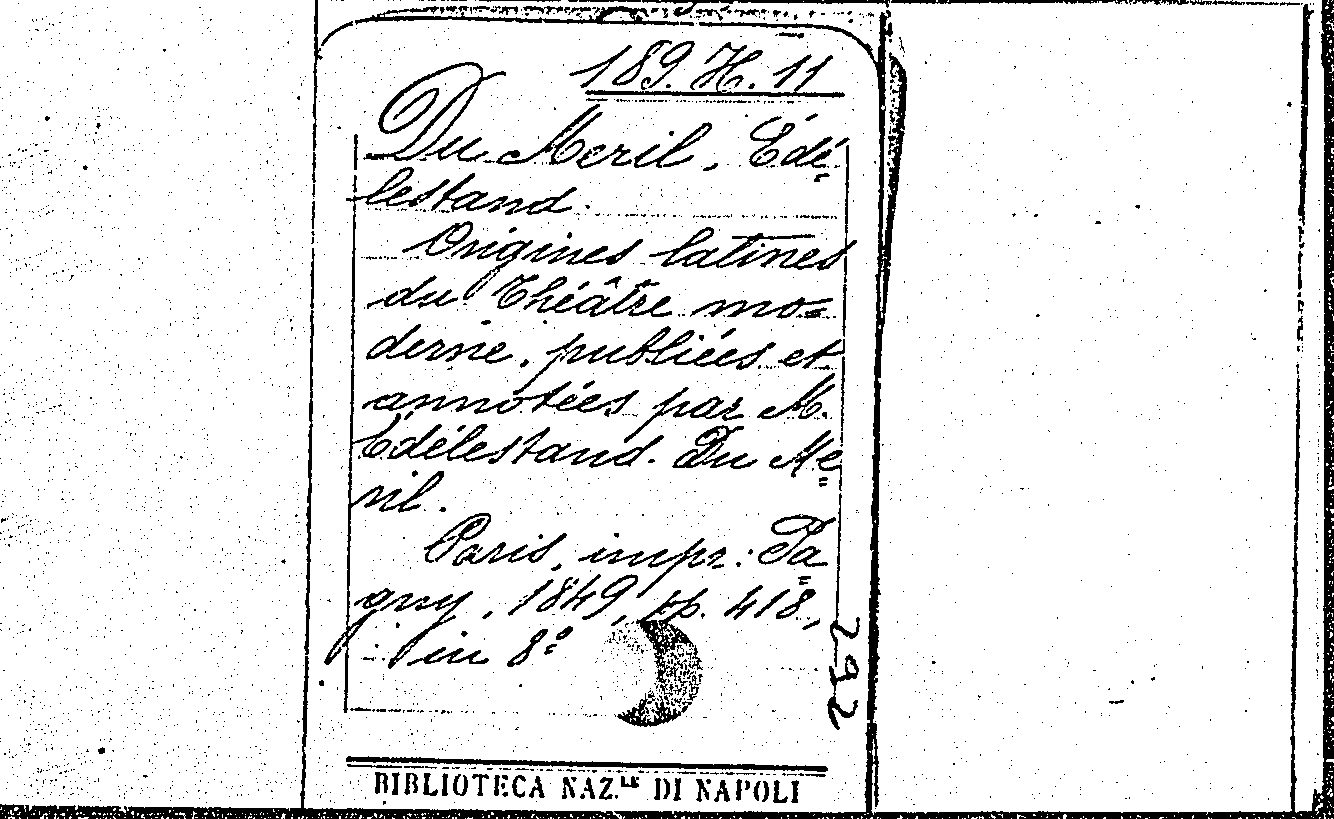 189. H. 11
Du Meril, Edé=
lestand.
Origines latines
du Théâtre mo=
derne, publiées et
annotées par M.
Edélestand. Du Mé=
ril.
Paris, impr: Pa=
gny, 1849, pp. 418,
in 8º
292
BIBLIOTECA NAZ.LE DI NAPOLI